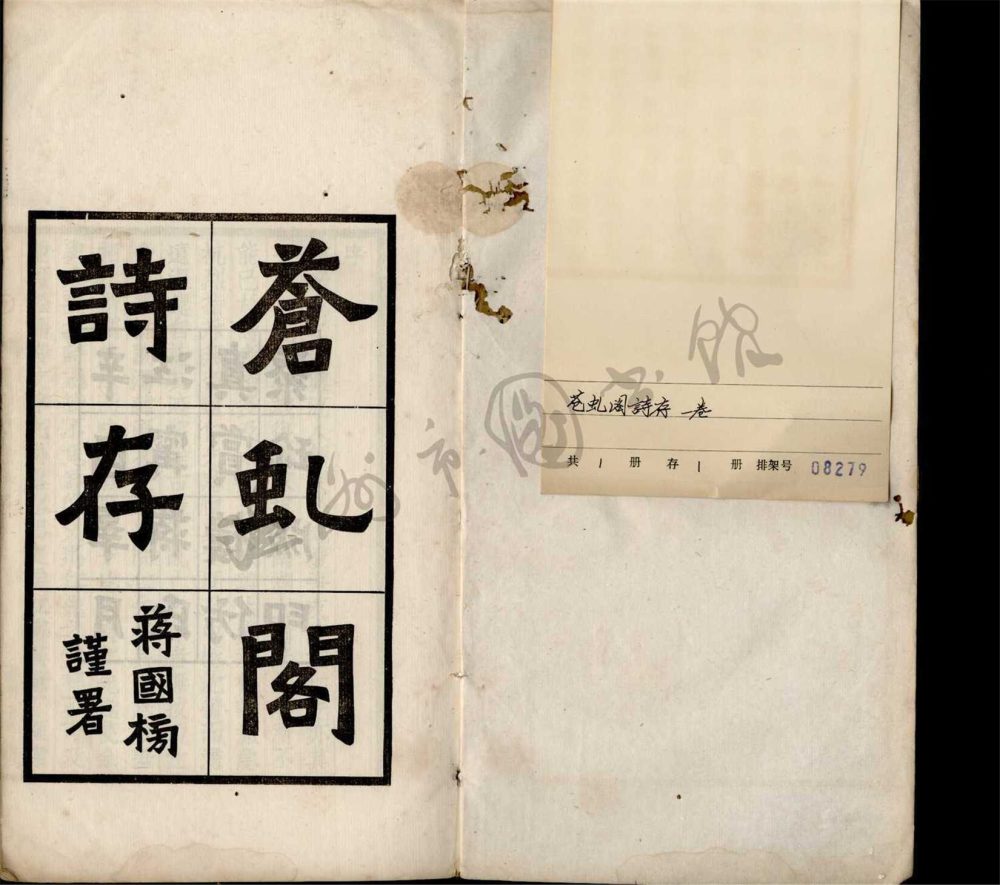 蒼虬閣
詩存
蔣國榜
謹署
苍虬阁詩存 一卷
共 1 册 存 1 册 排架号 08279
州市圖书馆